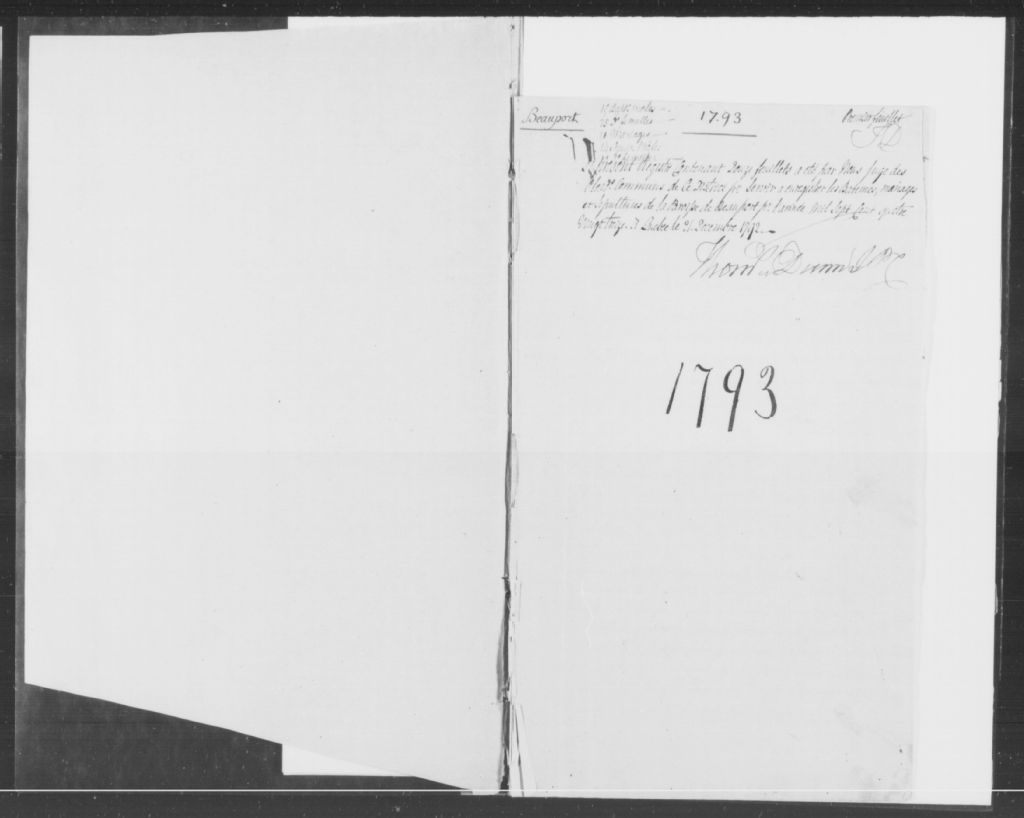 Beauport
1793
Premier feuillet
TD
Présent Registre Contenant Douze feuillets a été par Nous Juge des
Communs de Ce District pr Servir a enregistrer les Batemes, mariages
et Sepultures de la Paroisse de Beauport pr l'année Mil Sept Cent quatre
Vingt treiz. A Quebec le 21 Decembre 1792.
Thoms Dunn J P C
1793